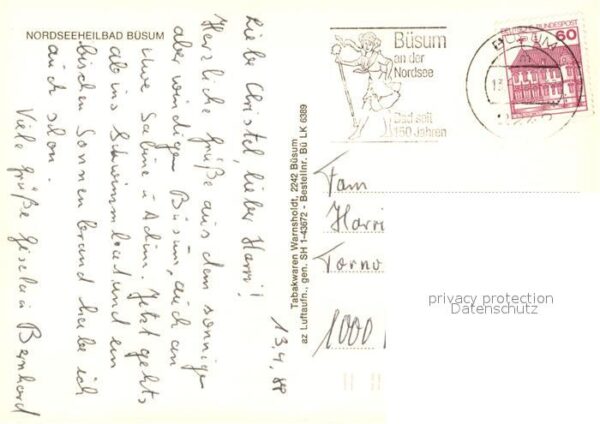 NORDSEEHEILBAD BÜSUM
13.4.88
Liebe Christel, lieber Harri!
Herzliche Grüße aus dem sonnigen
aber windigen Büsum, auch an
Uwe Sabine u
ab ins Schwimmbad und ein
bischen Sonnenbrand habe ich
auch schon.
Viele Grüße Gisela Bernhard
Tabakwaren Warnsholdt, 2242 Büsum
az Luftaufn., gen. SH 1-43672 - Bestellnr. Bü LK 6389
Büsum
an der
Nordsee
Bad seit
150 Jahren
BÜSUM
60
Fam
Harri
Torno
1000
privacy protection
Datenschutz